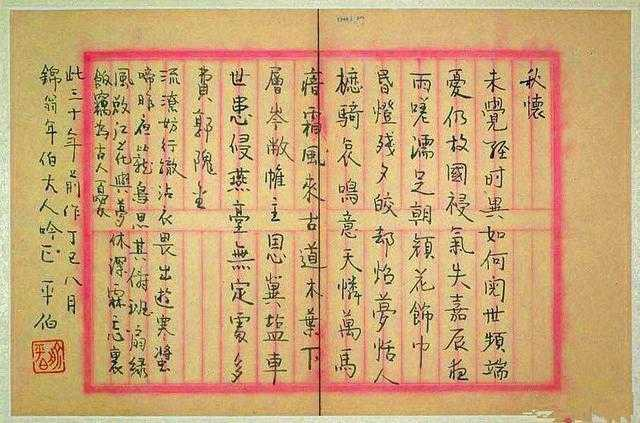 秋懷
未覺經時異如何閱世頻端
憂仍故國祲氣失嘉辰夜
雨嗟濡足朝顏花飾巾
昏燈殘夕皎却焰夢恬人
騎哀鳴意天憐萬馬
瘖霜風來古道木葉下
層岑敝帷主恩冀鹽車
世患侵燕臺無定處多
費郭隗金
流潦妨行轍沾衣畏出遊寒螿
啼昨夜籠鳥思其儔班扇綠
風啟江花與夢休深霖忘裹
飯竊為古人憂
此三十年前作丁巳八月
錦翁年伯大人吟正 平伯